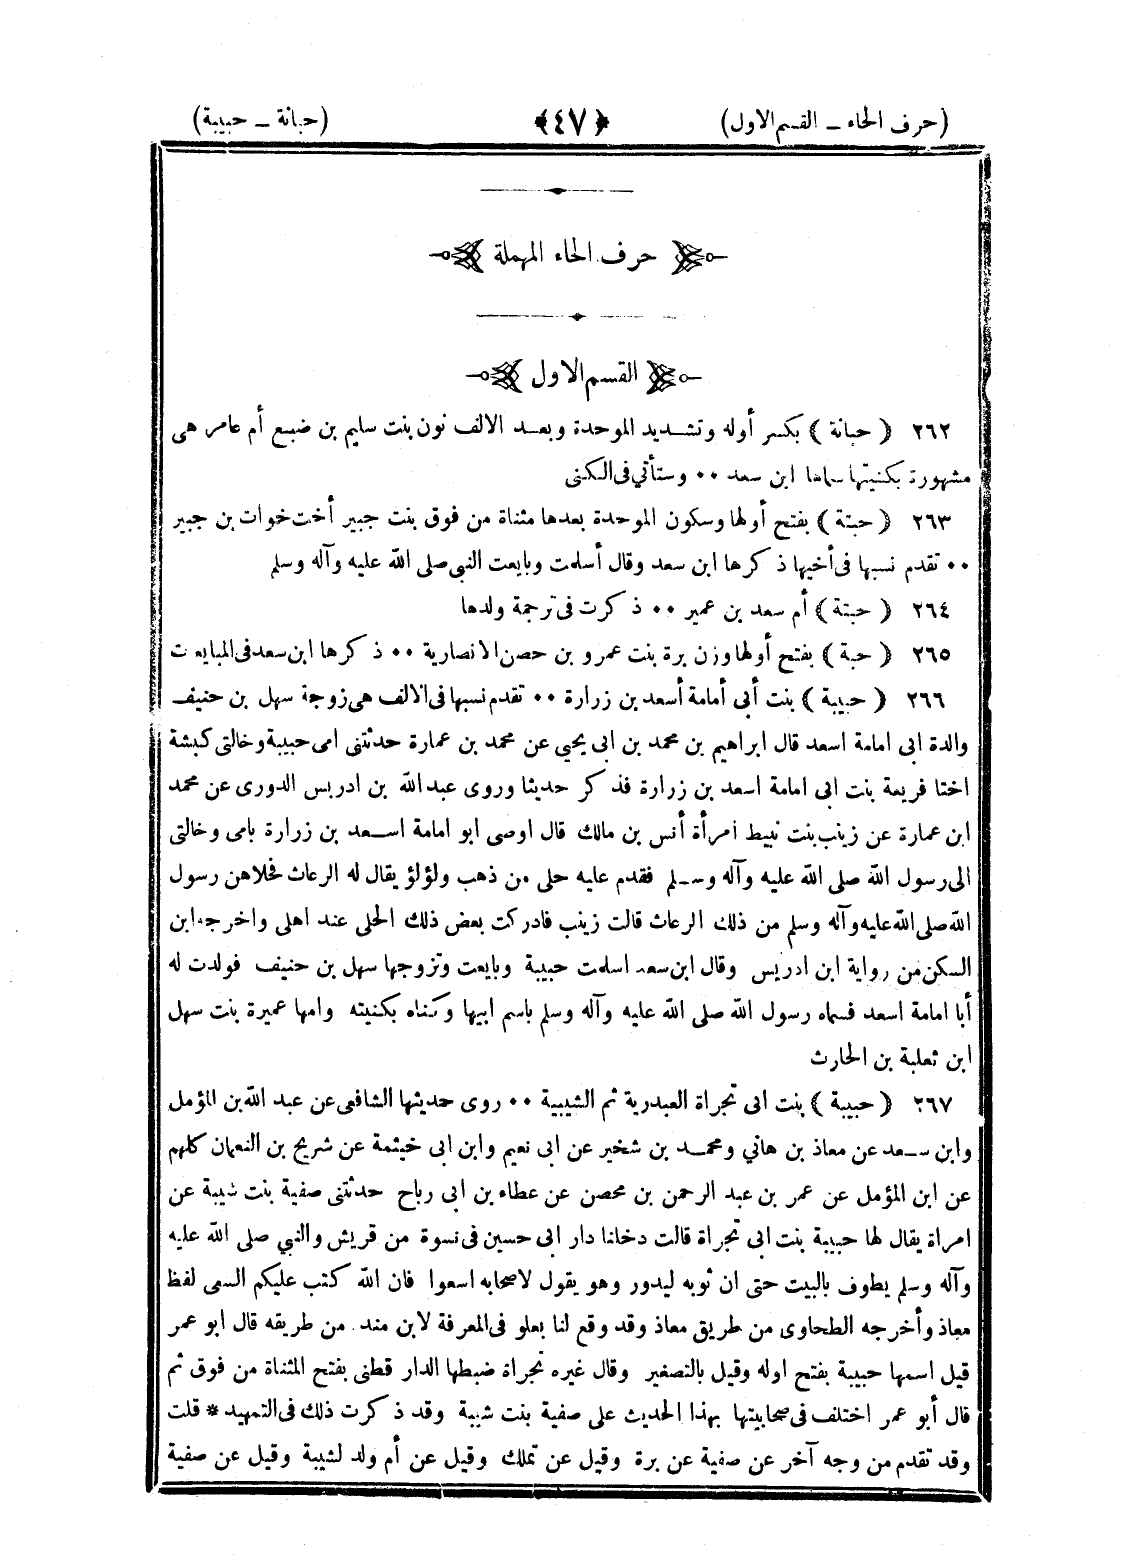 (حرف الحاء – القسم الاول) ﴿٤٧﴾ (حبانة – حبيبة)
حرف الحاء المهملة
القسم الاول
٢٦٢ ﴿ حبانة ﴾ بكسر أوله وتشديد الموحدة وبعد الالف نون بنت سليم بن ضبع أم عامر هى
مشهورة بكنيتها سماها ابن سعد ٠٠ وستأتي فى الكنى
٢٦٣ ﴿ حبتة ﴾ بفتح أولها وسكون الموحدة بعدها مثناة من فوق بنت جبير أخت خوات بن جبير
٠٠ تقدم نسبها فى أخيها ذكرها ابن سعد وقال أسلمت وبايعت النبي صلى الله عليه وآله وسلم
٢٦٤ ﴿ حبتة ﴾ أم سعد بن عمير ٠٠ ذكرت فى ترجمة ولدها
٢٦٥ ﴿ حبة ﴾ بفتح أولها وزن برة بنت عمرو بن حصن الانصارية ٠٠ ذكرها ابن سعد فى المبايعات
٢٦٦ ﴿ حبيبة ﴾ بنت أبي أمامة أسعد بن زرارة ٠٠ تقدم نسبها فى الالف هى زوجة سهل بن حنيف
والدة ابى امامة اسعد قال ابراهيم بن محمد بن ابى يحيى عن محمد بن عمارة حدثتنى امى حبيبة وخالتى كبشة
اختا فريعة بنت ابى امامة اسعد بن زرارة فذكر حديثا وروى عبد الله بن ادريس الدورى عن محمد
ابن عمارة عن زينب بنت نبيط امرأة أنس بن مالك قال اوصى ابو امامة اسعد بن زرارة بامى وخالتى
الى رسول الله صلى الله عليه وآله وسلم فقدم عليه حلى من ذهب ولؤلؤ يقال له الرعاث فحلاهن رسول
الله صلى الله عليه وآله وسلم من ذلك الرعاث قالت زينب فادركت بعض ذلك الحلى عند اهلى واخرجه ابن
السكن من رواية ابن ادريس وقال ابن سعد اسلمت حبيبة وبايعت وتزوجها سهل بن حنيف فولدت له
أبا امامة اسعد فسماه رسول الله صلى الله عليه وآله وسلم باسم ابيها وكناه بكنيته وامها عميرة بنت سهل
ابن ثعلبة بن الحارث
٢٦٧ ﴿ حبيبة ﴾ بنت ابى تجراة العبدرية ثم الشيبية ٠٠ روى حديثها الشافعى عن عبد الله بن المؤمل
وابن سعد عن معاذ بن هاني ومحمد بن شخير عن ابى نعيم وابن ابى خيثمة عن شريح بن النعمان كلهم
عن ابن المؤمل عن عمر بن عبد الرحمن بن محصن عن عطاء بن ابى رباح حدثتنى صفية بنت شيبة عن
امراة يقال لها حبيبة بنت ابى تجراة قالت دخلنا دار ابى حسين فى نسوة من قريش والنبي صلى الله عليه
وآله وسلم يطوف بالبيت حتى ان ثوبه ليدور وهو يقول لاصحابه اسعوا فان الله كتب عليكم السعى لفظ
معاذ وأخرجه الطحاوى من طريق معاذ وقد وقع لنا بعلو فى المعرفة لابن منده من طريقه قال ابو عمر
قيل اسمها حبيبة بفتح اوله وقيل بالتصغير وقال غيره تجراة ضبطها الدار قطنى بفتح المثناة من فوق ثم
قال أبو عمر اختلف فى صحابيتها بهذا الحديث على صفية بنت شيبة وقد ذكرت ذلك فى التمهيد * قلت
وقد تقدم من وجه آخر عن صفية عن برة وقيل عن تملك وقيل عن أم ولد لشيبة وقيل عن صفية